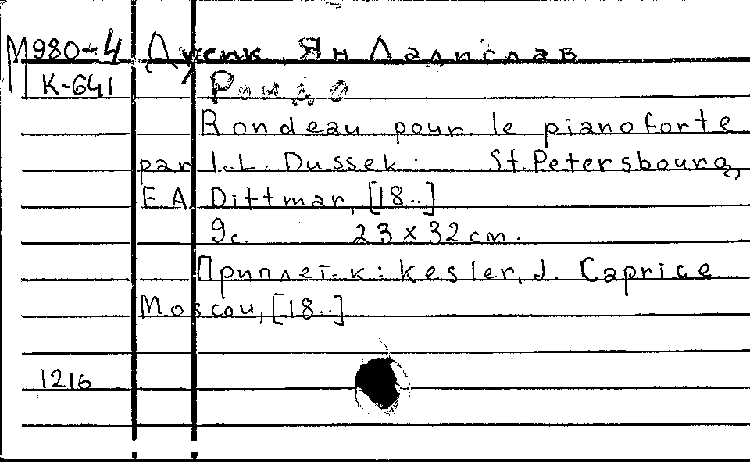 М980-4 Дусик Ян Ладислав
К-641 Рондо
Rondeau pour le pianoforte
par J.L. Dussek. St.Petersbourg,
E.A. Dittmar, [18..]
9с. 23 x 32 cm.
Приплет. к: Kesler, J. Caprice
Moscou, [18..]
1216